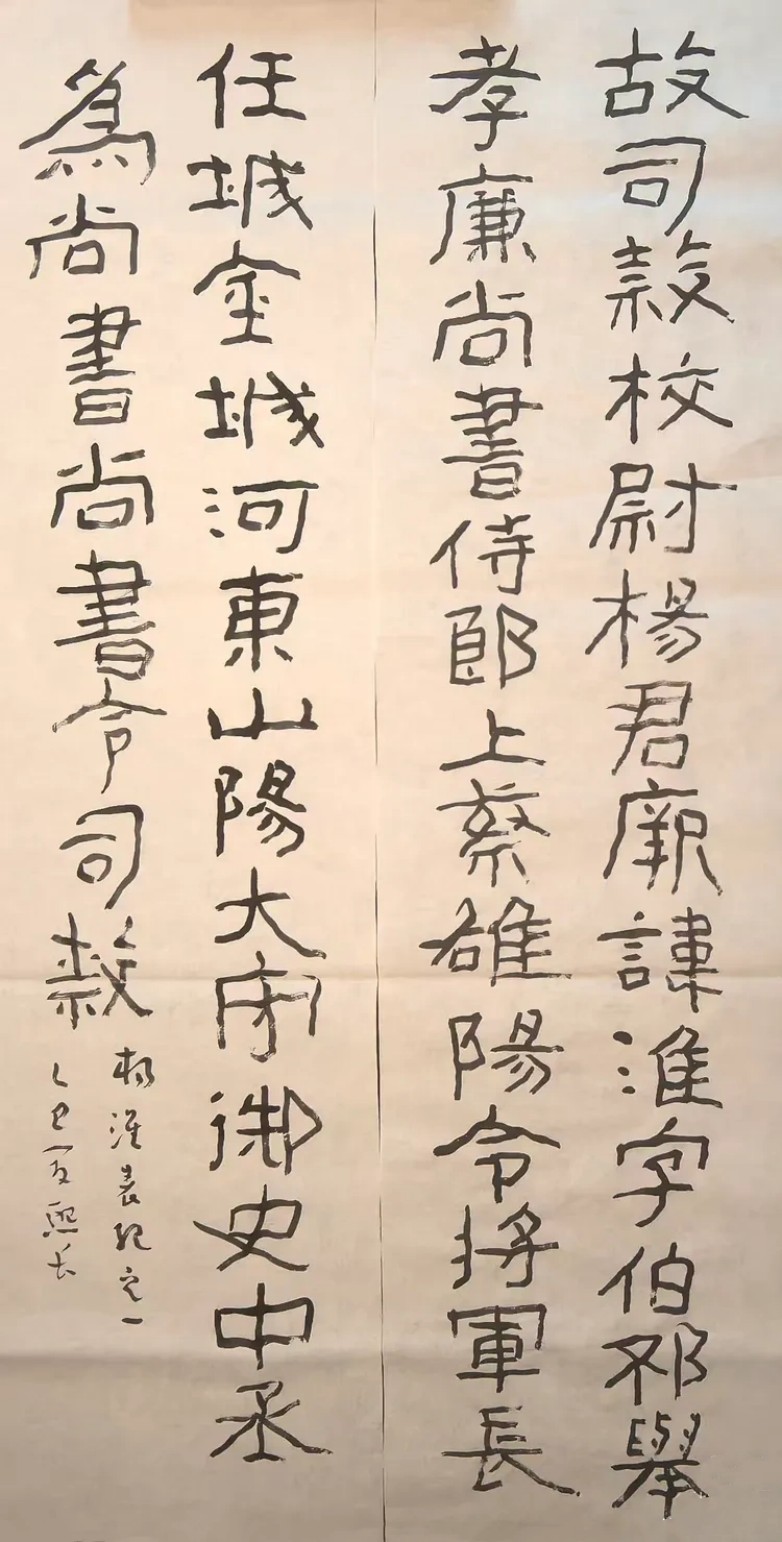 故司隸校尉楊君厥諱淮字伯邳舉
孝廉尚書侍郎上蔡雒陽令將軍長
任城金城河東山陽大守御史中丞
為尚書尚書令司隸
杨淮表纪之一
乙巳夏熙长